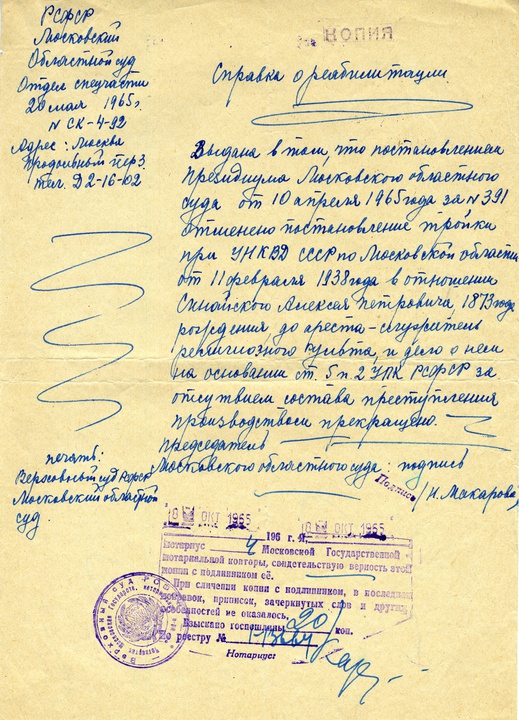 РСФСР
Московский
Областной суд
Отдел спецчасти
20 мая 1965г.
N СК-4-92
Адрес: Москва
тел. Д2-16-02
КОПИЯ
Справка о реабилитации
Выдана в том, что постановлением
Президиума Московского областного
суда от 10 апреля 1965 года за N 391
отменено постановление тройки
при УНКВД СССР по Московской области
от 11 февраля 1938 года в отношении
Синайского Алексея Петровича, 1873 года
рождения, до ареста - служитель
религиозного культа, и дело о нем
на основании ст. 5 п. 2 УПК РСФСР за
отсутствием состава преступления
производством прекращено.
Председатель
Московского областного суда: подпись
Подпись
/Н. Макарова/
печать:
Верховный суд РСФСР
Московский областной
суд
18 ОКТ 1965
18 ОКТ 1965
196 г. Я,
Нотариус 4 Московской Государственной
нотариальной конторы, свидетельствую верность этой
копии с подлинником её.
При сличении копии с подлинником, в последнем
поправок, приписок, зачеркнутых слов и других
особенностей не оказалось.
Взыскано госпошлины 20 коп.
По реестру №
Нотариус